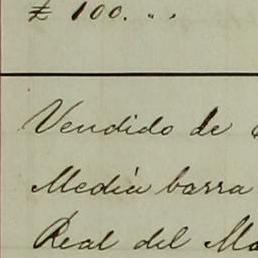 £ 100. " "
Vendido de
Media barra
Real del